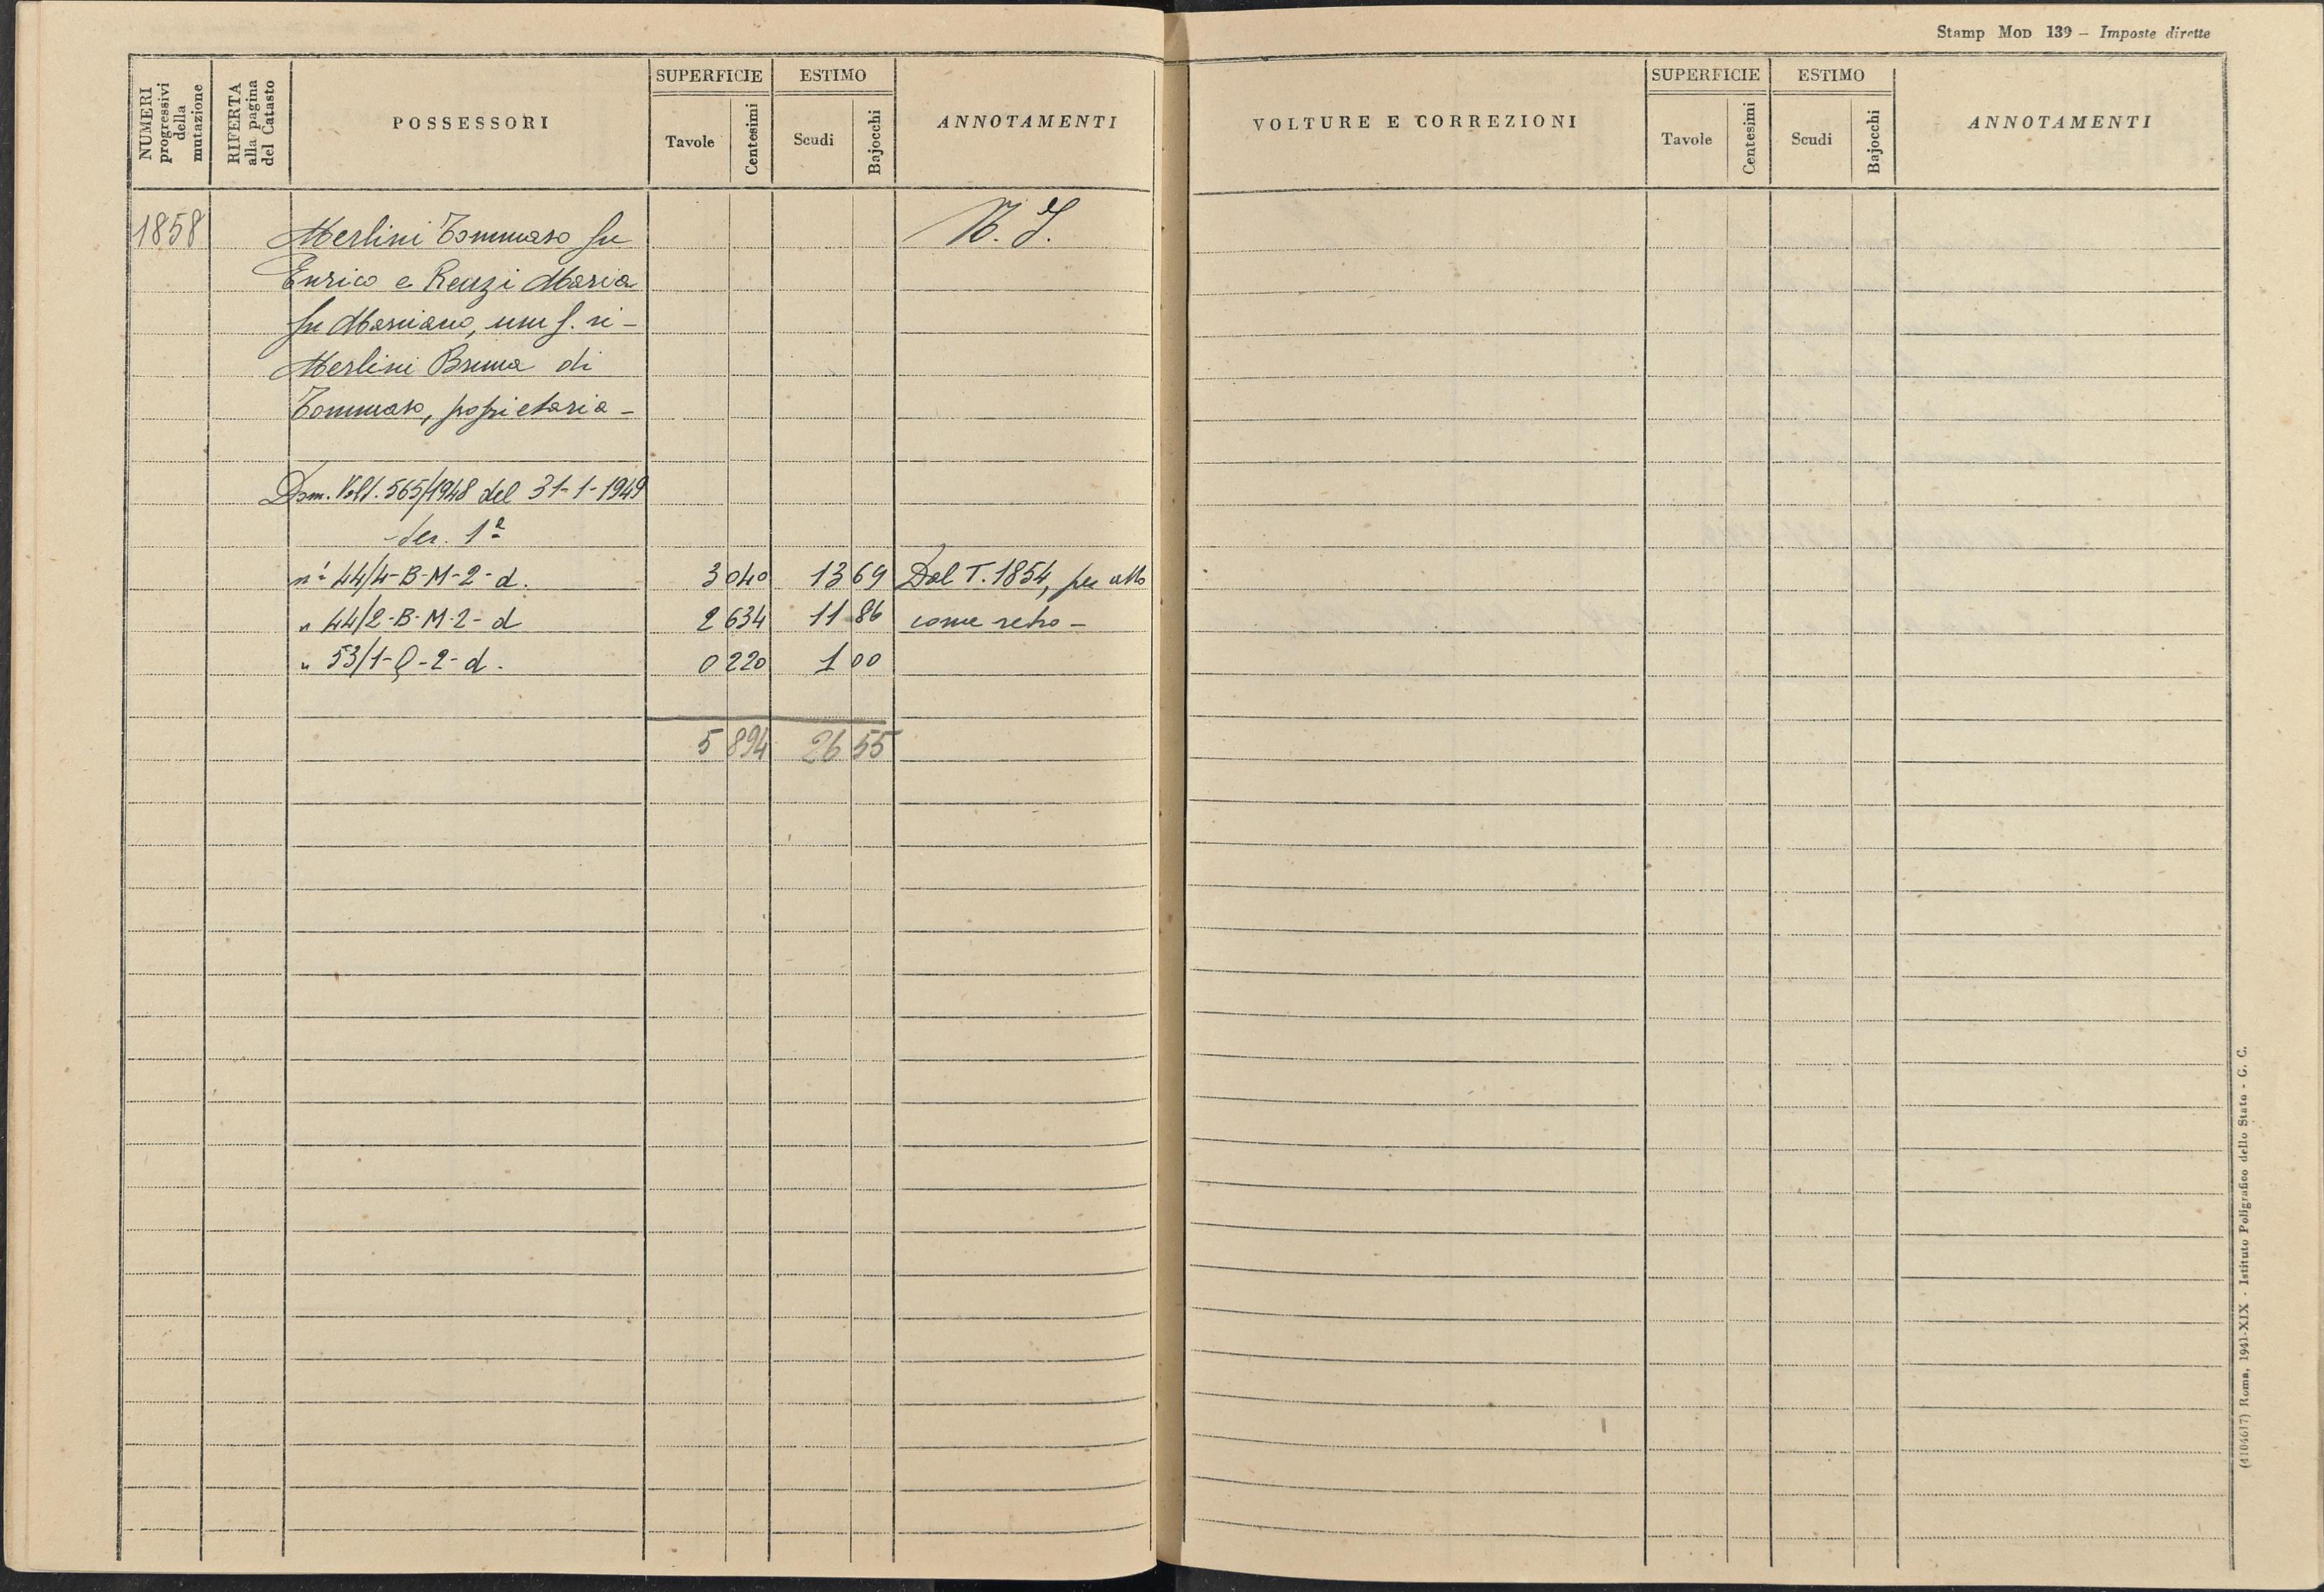 Stamp Mod 139 – Imposte dirette
NUMERI progressivi della mutazione
RIFERTA alla pagina del Catasto
POSSESSORI
SUPERFICIE
Tavole
Centesimi
ESTIMO
Scudi
Bajocchi
ANNOTAMENTI
VOLTURE E CORREZIONI
SUPERFICIE
Tavole
Centesimi
ESTIMO
Scudi
Bajocchi
ANNOTAMENTI
1858 Merlini Tommaso fu
Enrico e Renzi Maria
fu Mariano, usuf. ri –
Merlini Bruna di
Tommaso, proprietaria –
Dom. Volt. 565/1948 del 31-1-1949
1ª
n° 44/4-B-M-2-d. 3 040 13 69 Dal T. 1854, per atto
" 44/2-B-M-2-d 2 634 11 86 come retro –
" 53/1-Q-2-d. 0 220 1 00
5 894 26 55
(4104617) Roma, 1941-XIX - Istituto Poligrafico dello Stato - G. C.